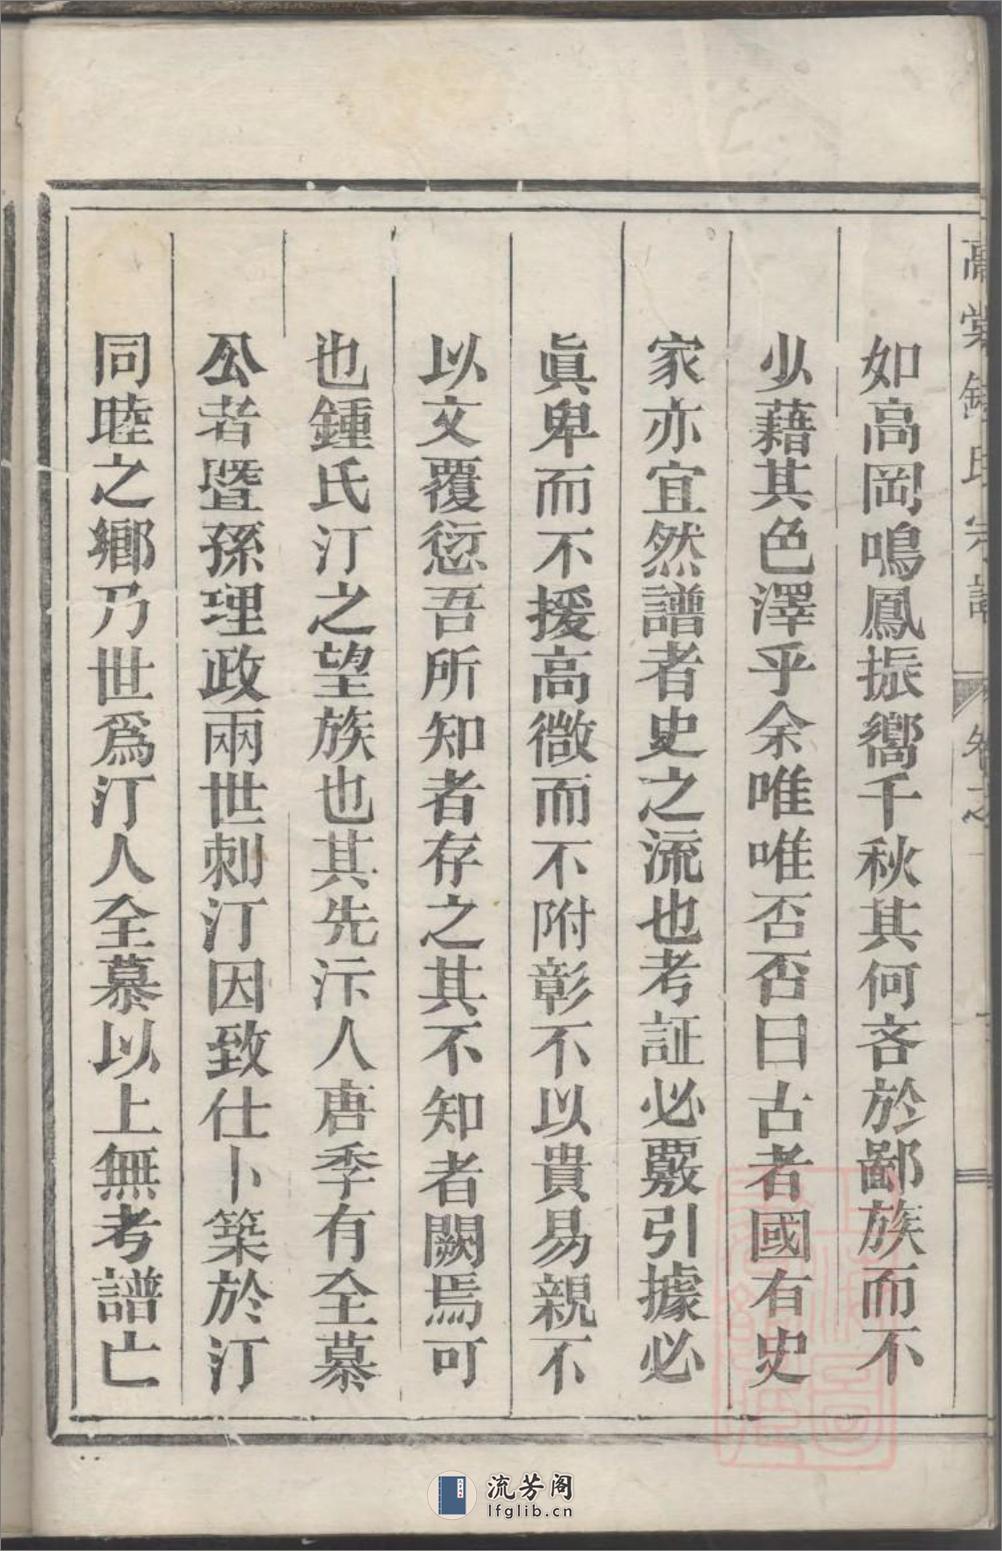 如高岡鳴鳳振嚮千秋其何吝於鄙族而不
少藉其色澤乎余唯唯否否曰古者國有史
家亦宜然譜者史之流也考証必覈引據必
眞卑而不援高微而不附彰不以貴易親不
以文覆愆吾所知者存之其不知者闕焉可
也鍾氏汀之望族也其先汴人唐季有全慕
公者暨孫理政兩世刺汀因致仕卜築於汀
同睦之鄉乃世爲汀人全慕以上無考譜亡
流芳阁
lfglib.cn